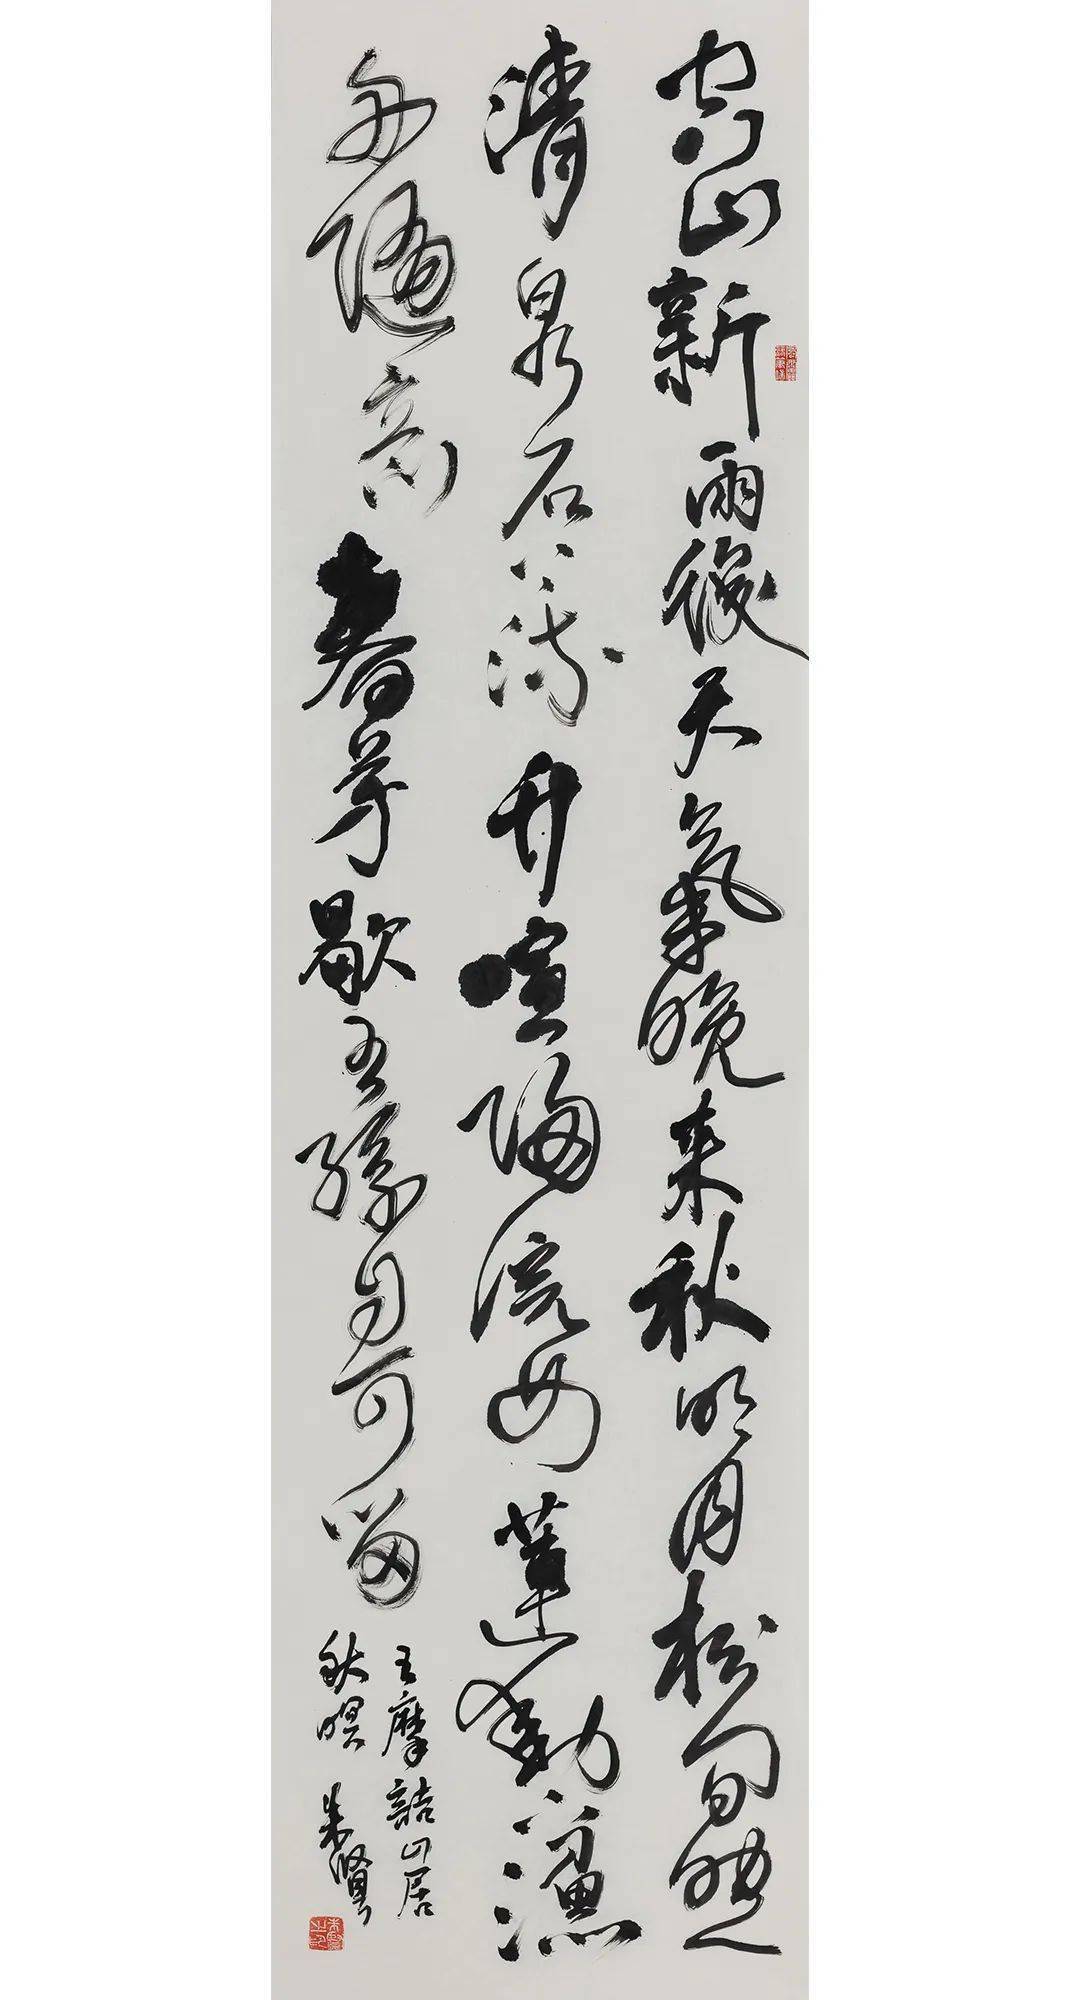 空山新雨後天氣晚来秋明月松間照
清泉石上流竹喧歸浣女蓮動下漁
舟隨意春芳歇王孫自可留
王摩詰山居
秋暝 朱賢
朱賢之印